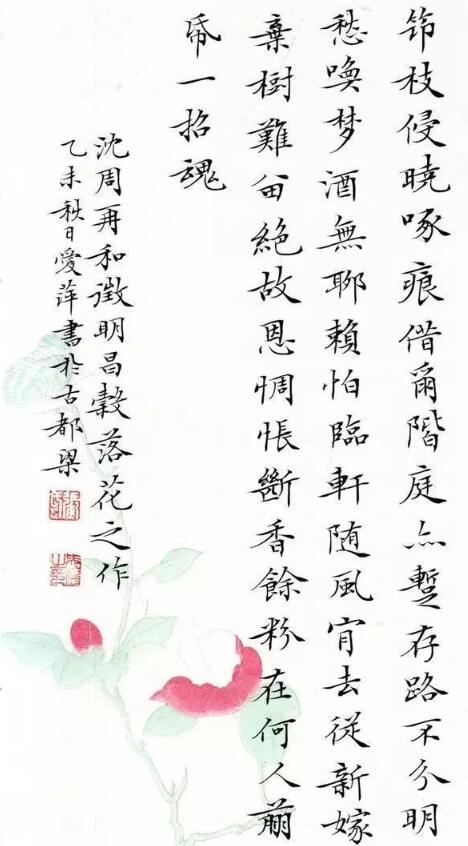 筇枝侵曉啄痕借爾階庭亦暫存路不分明
愁喚梦酒無聊賴怕臨軒随風肯去從新嫁
棄樹難留絶故恩惆悵斷香餘粉在何人前
帋一招魂
沈周再和徵明昌穀落花之作
乙未秋日愛萍書於古都梁